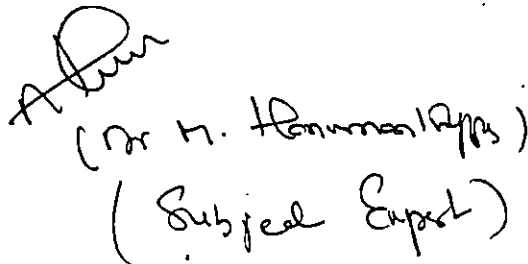 (Dr M. Hanumanthappa)
(Subject Expert)